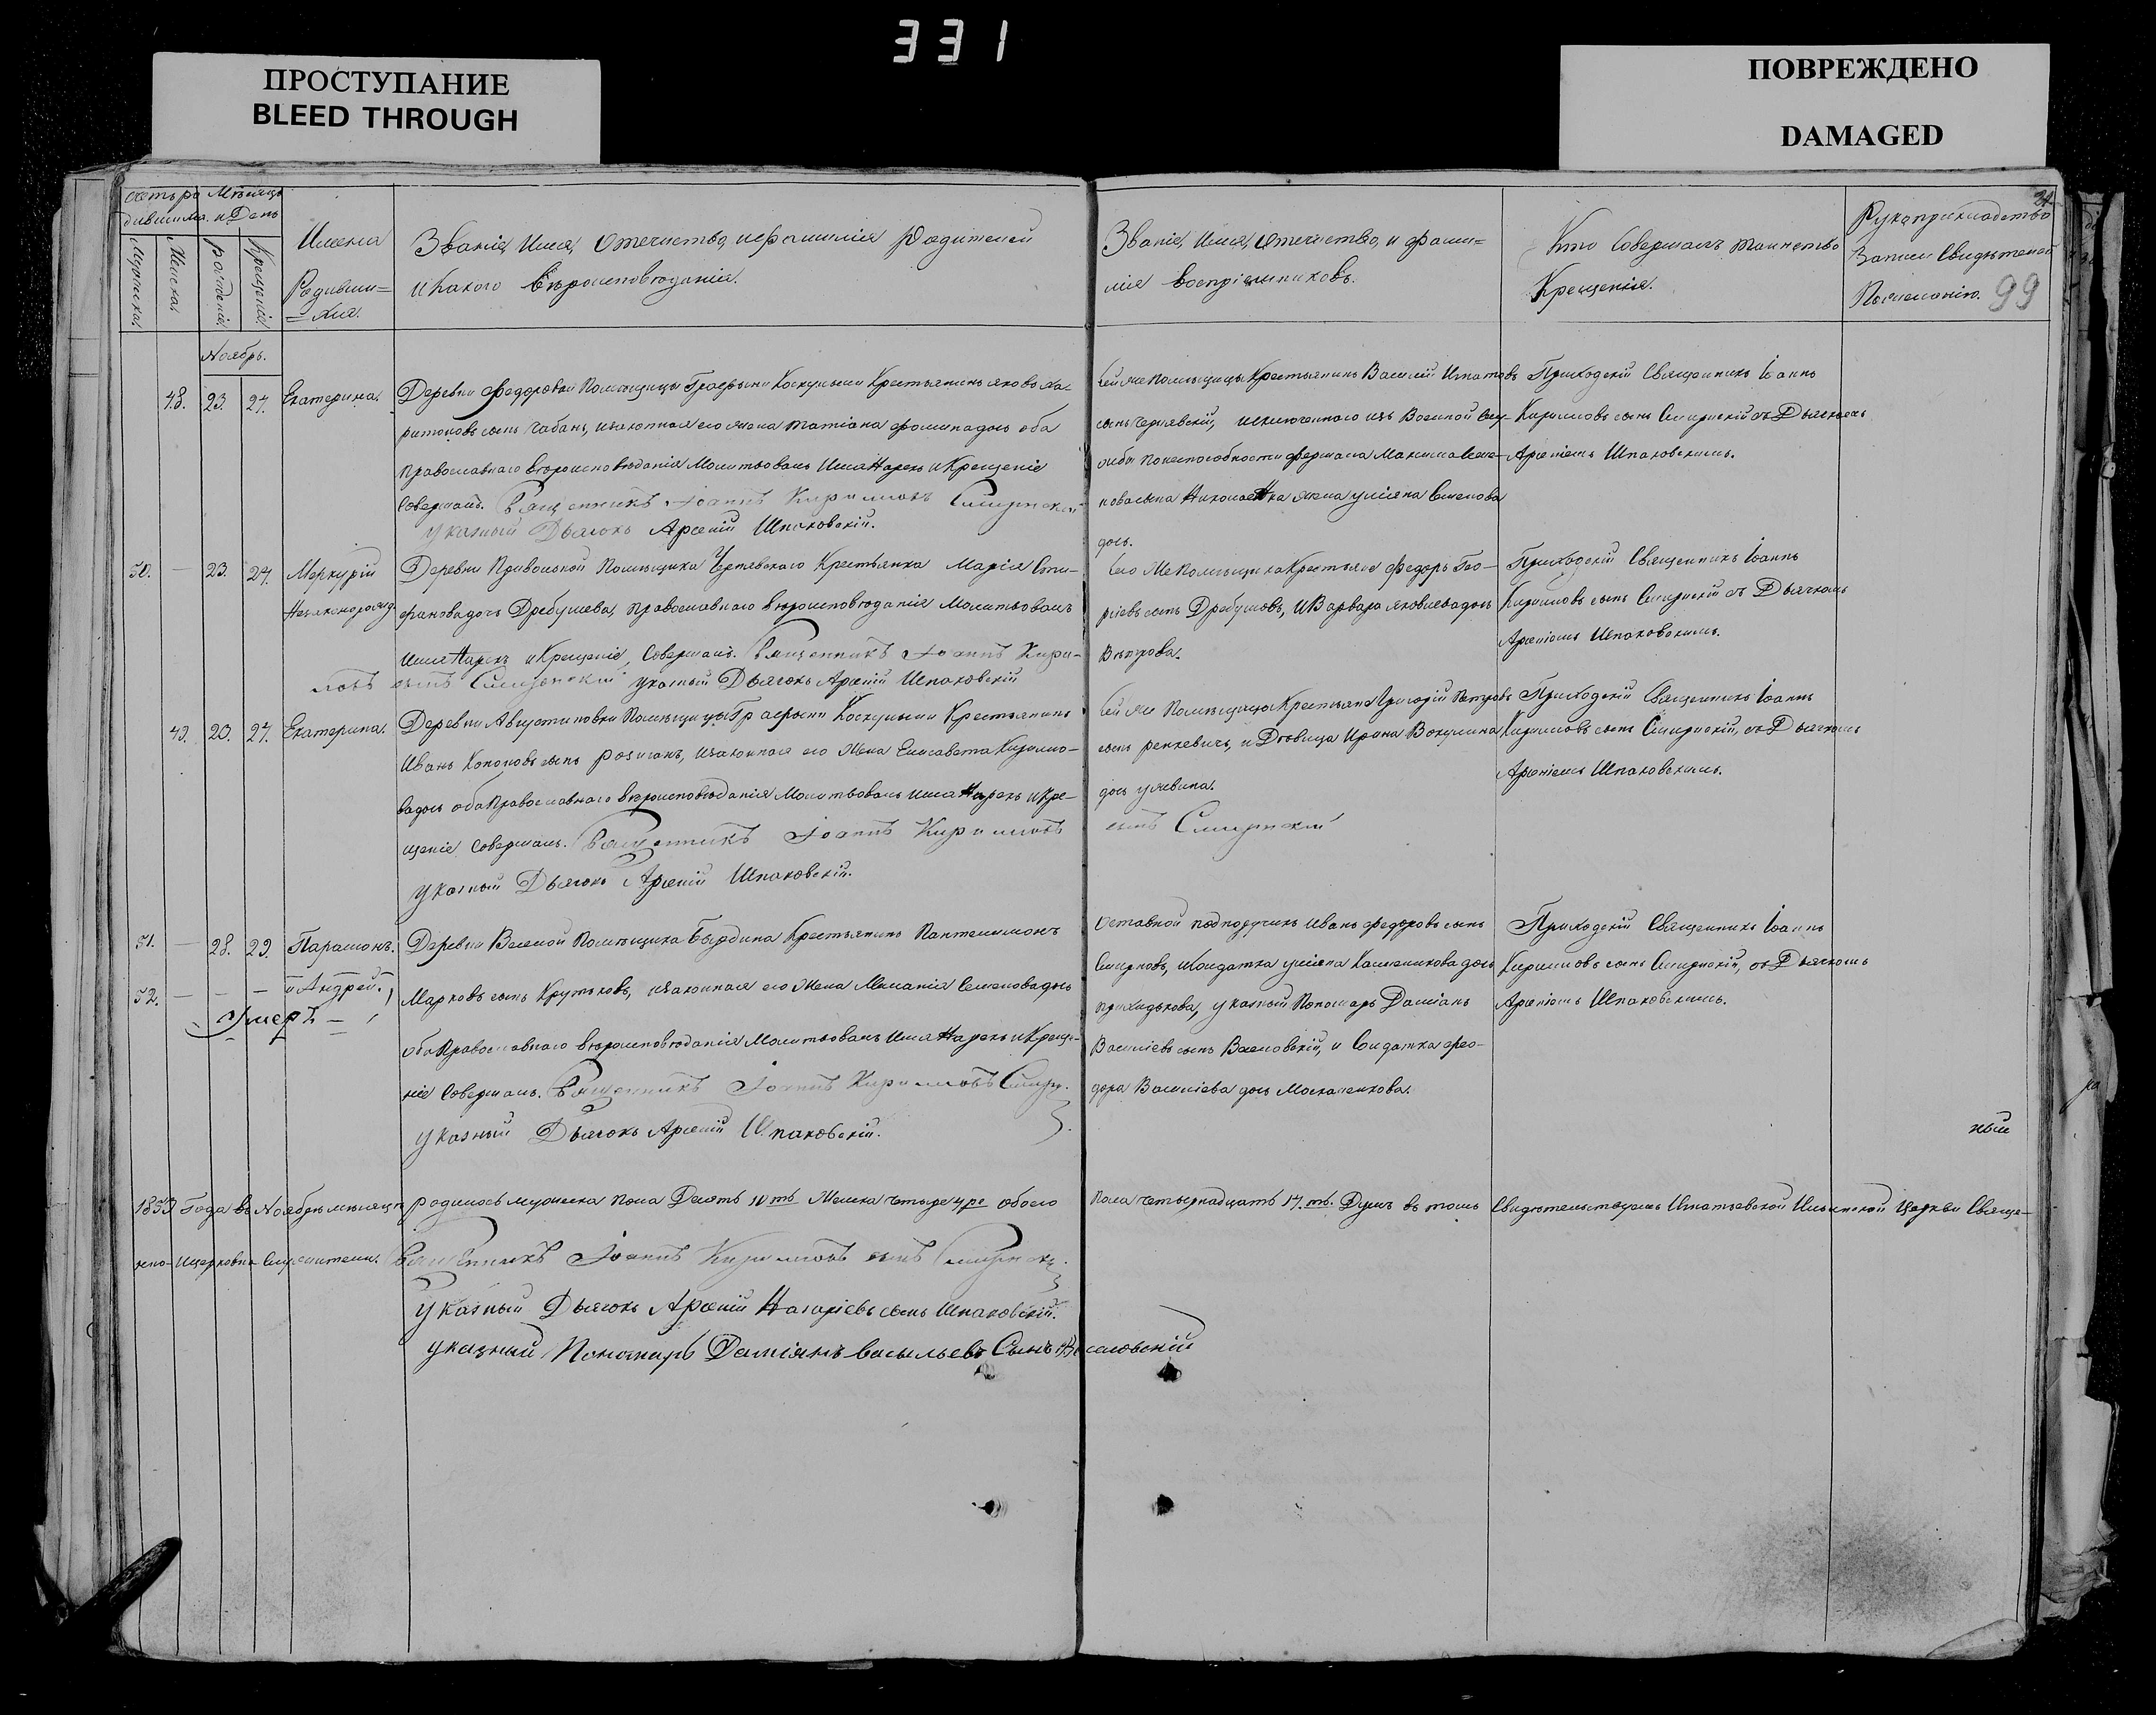 331
ПРОСТУПАНИЕ
BLEED THROUGH
ПОВРЕЖДЕНО
DAMAGED
Мѣсяцъ
и День
Мужеска
Женска
Рожденія
Крещенія
Имена
Родивши=
=хся.
Званіе, Имя, Отечество, и фамилія Родителей
и Какого Вѣроисповѣданія.
Званіе, Имя, Отечество, и фами=
лія Воспріемниковъ.
Кто Совершалъ таинство
Крещенія.
Рукоприкладство
Записи Свидѣтелей
По желанію. 99
Ноябрь.
48. 23. 27. Екатерина.
Деревни Федоровки Помѣщицы Графыни Крестьянинъ Яковъ Ха-
ритоновъ сынъ Чабанъ, изаконная его жена Татіана Фомина дочь оба
Православнаго Вѣроисповѣданія Молитвовалъ Имя Нарекъ и Крещеніе
Совершалъ. Священникъ Іоаннъ Кирилловъ
указный Дьячокъ Арсеній Шпаковскій.
Сей же Помѣщицы Крестьянинъ Василій Игнатовъ
сынъ Чернявскій, изключеннаго изъ Военной Слу-
жбы По неспособности фершала Максима Семе-
нова сына Николаенка жена Уліяна Семенова
дочь.
Приходскій Священникъ Іоаннъ
Кирилловъ сынъ Смирнскій съ Дьячкомъ
Арсеніемъ Шпаковскимъ.
50. — 23. 27. Меркурій
Незаконорожд.
Деревни Привольной Помѣщика Чернявскаго Крестьянка Марія Сти-
фанова дочь Дребушева, православнаго вѣроисповѣданія Молитвовалъ
Имя Нарекъ и Крещеніе, Совершалъ. Священникъ Іоаннъ Кири-
ловъ сынъ указный Дьячокъ Арсеній Шпаковскій
Сего же Помѣщика Крестьяне Федоръ Гео-
ргіевъ сынъ Дребушовъ, и Варвара Яковлева дочь
Вѣтрова.
Приходскій Священникъ Іоаннъ
Кирилловъ сынъ Смирнскій съ Дьячкомъ
Арсеніемъ Шпаковскимъ.
49. 20. 27. Екатерина.
Деревни Августиновки Помѣщицы Графыни Крестьянинъ
Иванъ Кононовъ сынъ изаконная его Жена Елисавета Кирилло-
ва дочь оба Православнаго вѣроисповѣданія Молитвовалъ имя Нарекъ и Кре-
щеніе Совершалъ. Священникъ Іоаннъ Кирилловъ
указный Дьячокъ Арсеній Шпаковскій.
Сей же Помѣщицы Крестьяне Григорій Петровъ
сынъ и Дѣвица Ирина
дочь
сынъ
Приходскій Священникъ Іоаннъ
Кирилловъ сынъ Смирнскій, съ Дьячкомъ
Арсеніемъ Шпаковскимъ.
51. — 28. 29. Парамонъ.
52. — — — и Андрей.
Умеръ
Деревни Веселой Помѣщика Крестьянинъ Пантелимонъ
Марковъ сынъ Крутьковъ, изаконная его Жена Меланія Семенова дочь
оба Православнаго вѣроисповѣданія Молитвовалъ Имя Нарекъ и Креще-
ніе Совершалъ. Священникъ Іоаннъ Кирилловъ
указный Дьячокъ Арсеній Шпаковскій.
Оставной подпоручикъ Иванъ Федоровъ сынъ
Смирновъ, Солдатка Уліяна дочь
Приходькова, указный Пономарь Даміанъ
Василіевъ сынъ и Солдатка Фео-
дора Василіева дочь Москаленкова.
Приходскій Священникъ Іоаннъ
Кирилловъ сынъ Смирнскій, съ Дьячкомъ
Арсеніемъ Шпаковскимъ.
Года въ Ноябрѣ мѣсяцѣ родилось мужеска пола Десять 10ть Женска четыре 4ре обоего
пола четырнадцать 14ть. Душъ въ томъ Свидѣтельствуемъ Игнатьевской Церкви Свяще-
но- и церковно служители. Священникъ Іоаннъ Кирилловъ сынъ
указный Дьячокъ Арсеній Назаріевъ сынъ Шпаковскій.
указный Пономарь Даміянъ Васильевъ Сынъ